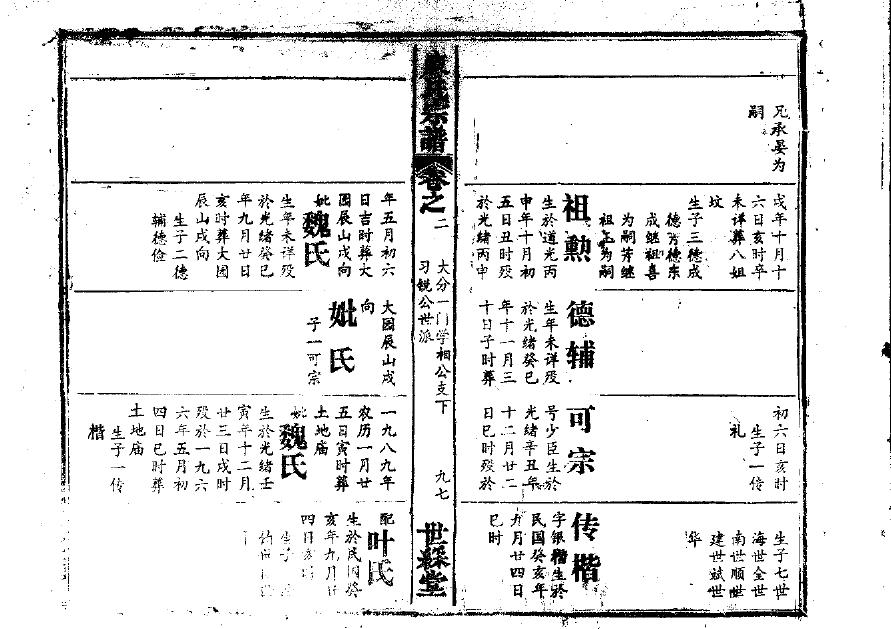 兄承晏为
嗣
戌年十月十
六日亥时卒
未详葬八姐
坟
生子三德成
德芳德东
成继祖喜
为嗣芳继
祖玉为嗣
祖勲
生於道光丙
申年十月初
五日丑时殁
於光绪丙申
德辅
生年未详殁
於光绪癸巳
年十一月三
十日子时葬
初六日亥时
生子一传
礼
可宗
号少臣生於
光绪辛丑年
十二月廿二
日巳时殁於
生子七世
海世全世
南世顺世
建世斌世
华
传楷
字银楷生於
民国癸亥年
九月廿四日
巳时
氏宗譜
卷之二
大分一门学相公支下
习锐公世派
九七
世綵堂
年五月初六
日吉时葬大
园辰山戌向
妣魏氏
生年未详殁
於光绪癸巳
年九月廿日
亥时葬大园
辰山戌向
生子二德
辅德俭
大园辰山戌
向
妣氏
子一可宗
一九八九年
农历一月廿
五日寅时葬
土地庙
妣魏氏
生於光绪壬
寅年十二月
廿三日戌时
殁於一九六
六年五月初
四日巳时葬
土地庙
生子一传
楷
配叶氏
生於民国癸
亥年九月廿
四日亥时
生子